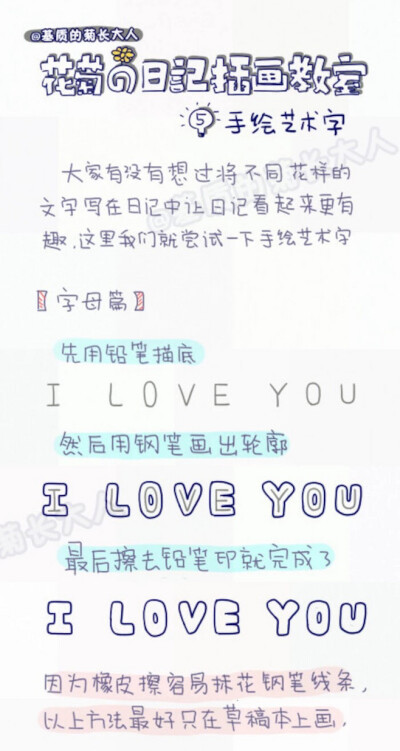 @基质的菊长大人
花菊の日記插画教室
⑤ 手绘艺术字
大家有没有想过将不同花样的
文字写在日记中让日记看起来更有
趣,这里我们就尝试一下手绘艺术字
【字母篇】
先用铅笔描底
I LOVE YOU
然后用钢笔画出轮廓
I LOVE YOU
最后擦去铅笔印就完成了
I LOVE YOU
因为橡皮擦容易抹花钢笔线条,
以上方法最好只在草稿本上画.